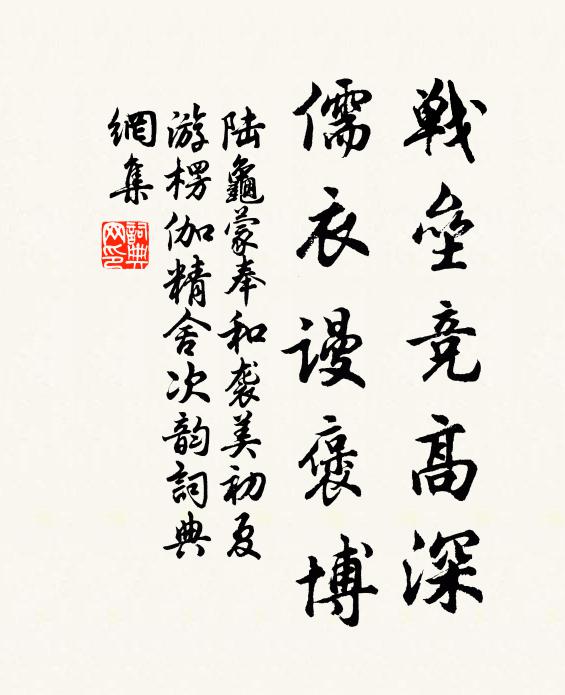 戰壘竞高深
儒衣謾褒博
陆龜蒙奉和袭美初夏
游楞伽精舍次韵詞典
網集
詞典网印